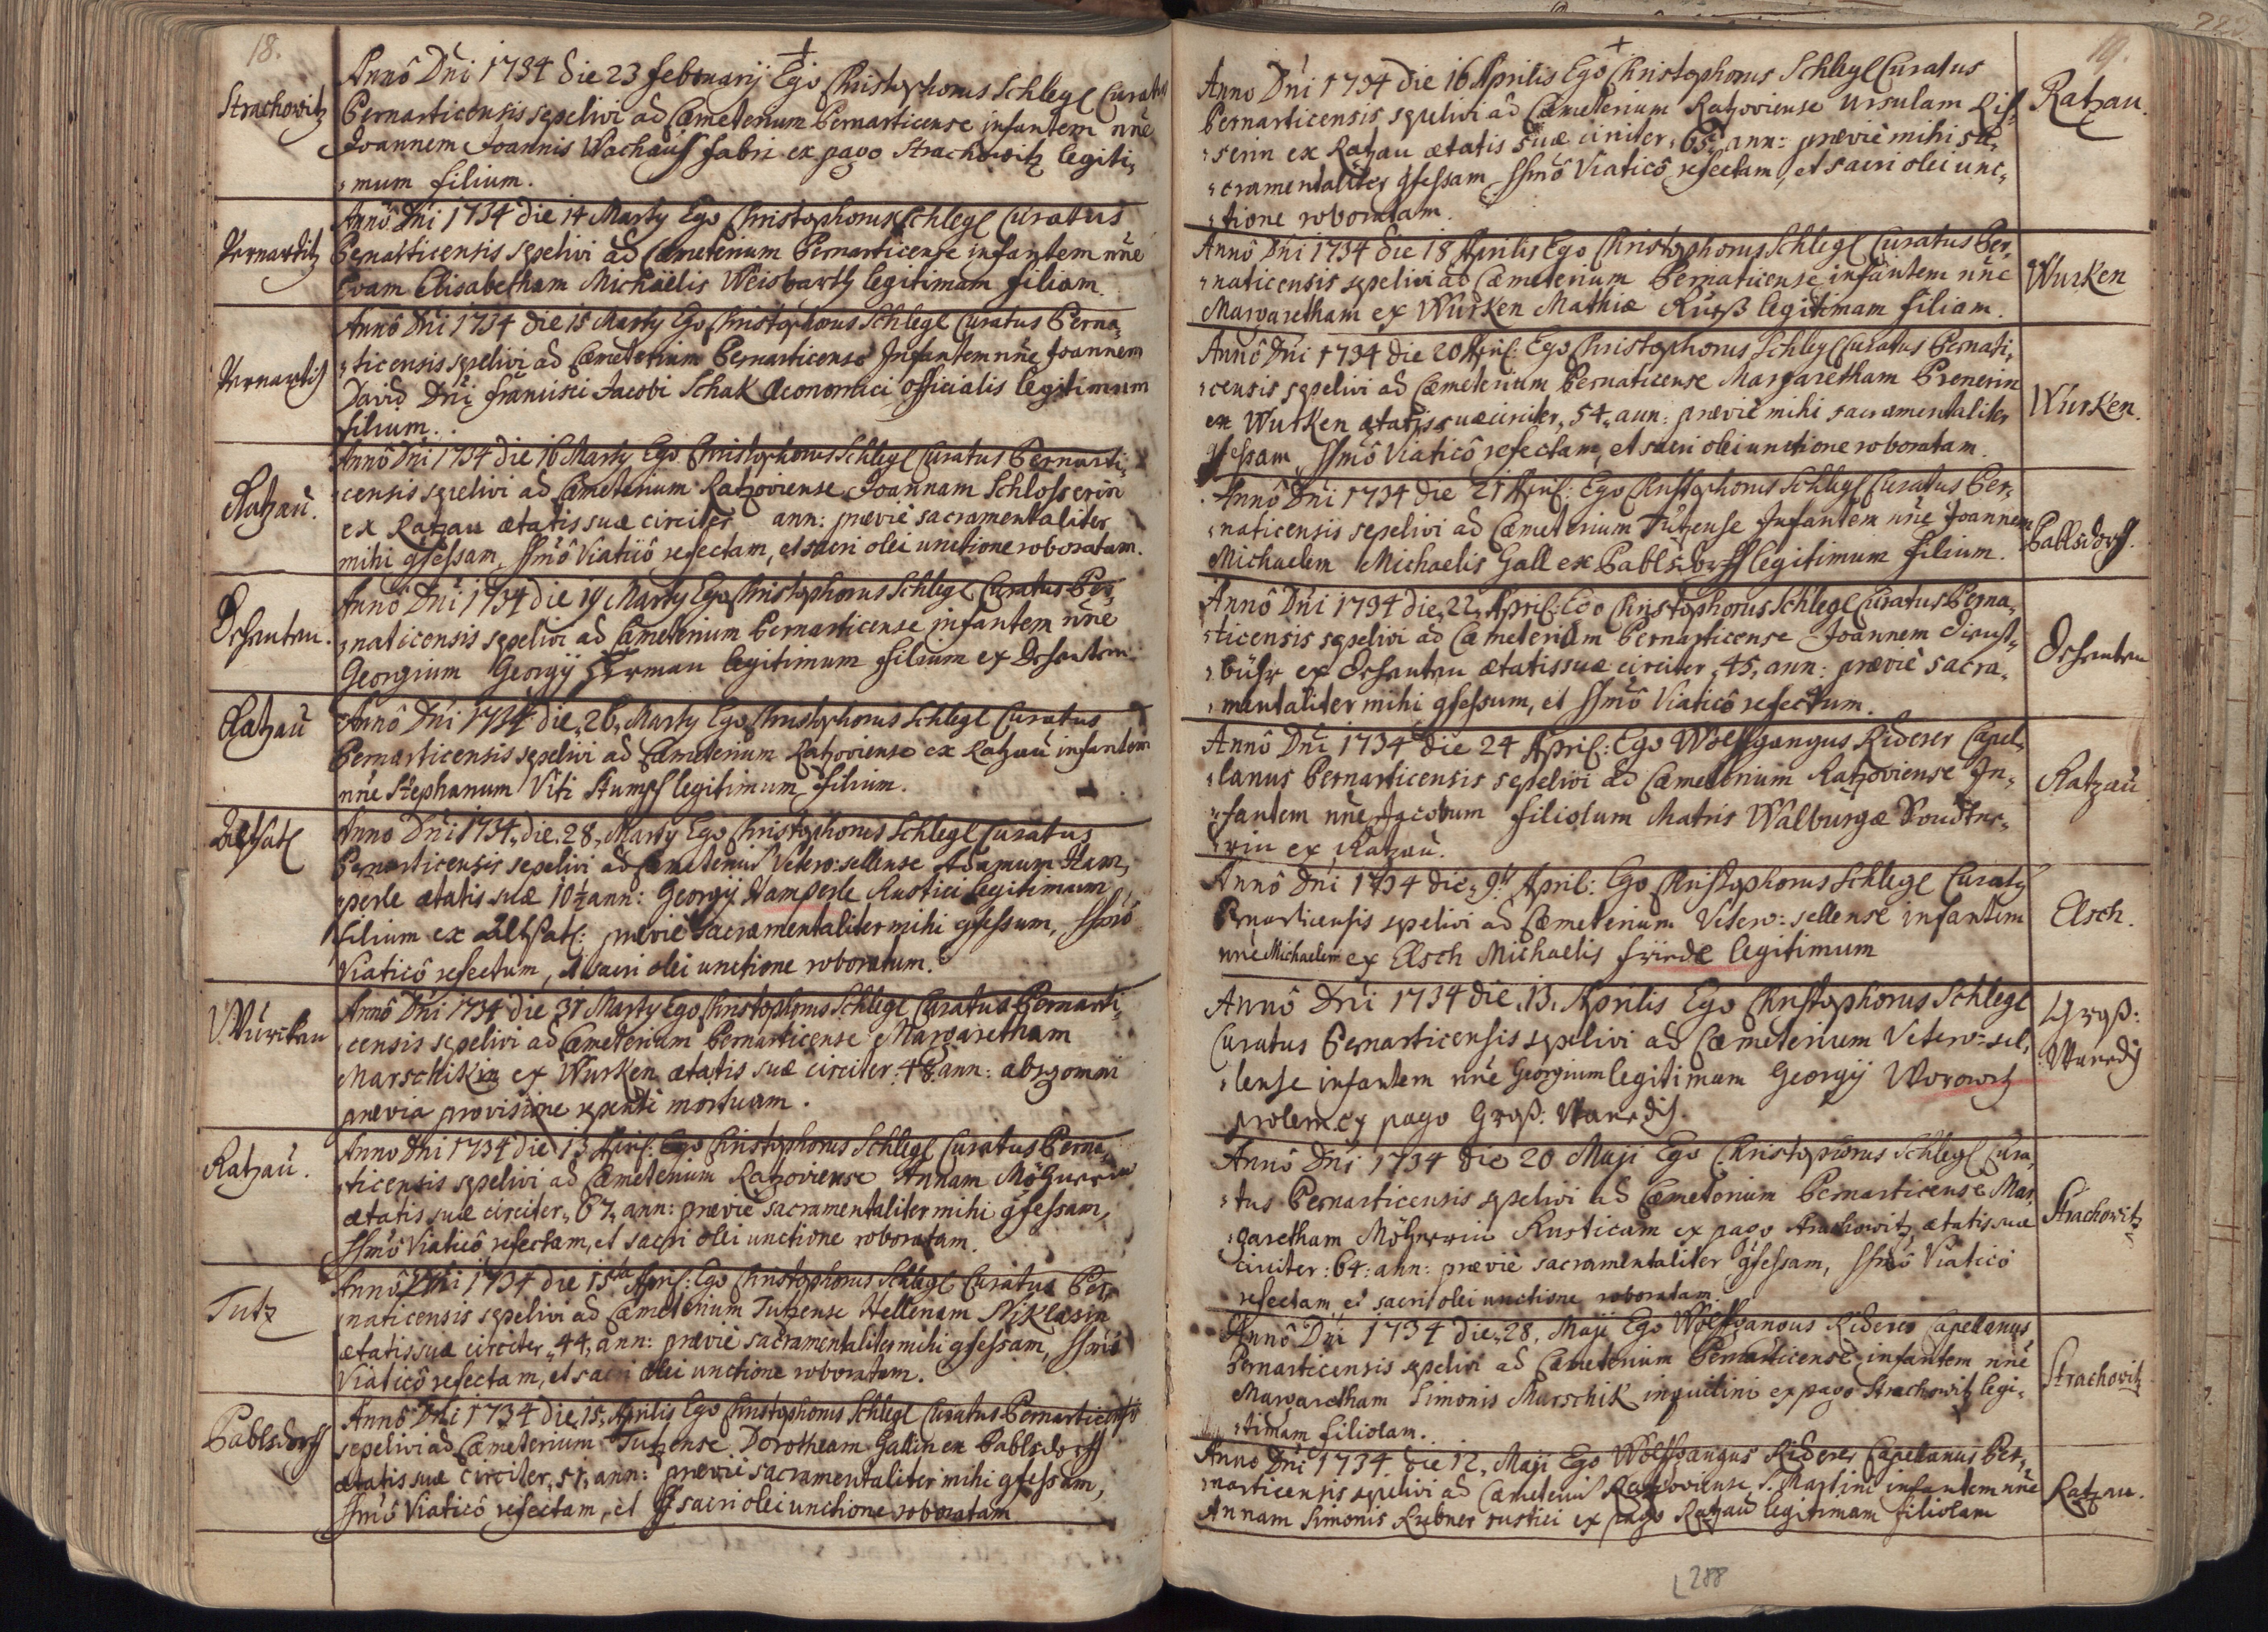 18.
Strachowitz
Annô Dñi 1734 die 23 februarij Ego Christophorus Schlegl Curatus
Bernarticensis sepelivi ad Cæmeterium Bernarticense infantem nñe
Joannem Joannis Wachauß fabri ex pago Strachowitz legiti„
„mum filium.
Pernarditz
Annô Dñi 1734 die 14 Marty Ego Christophorus Schlegl Curatus
Bernarticensis sepelivi ad Cæmeterium Bernarticense infantem nñe
Evam Elisabetham Michaëlis Weisbarth legitimam filiam.
Annô Dñi 1734 die 15 Marty Ego Christophorus Schlegl Curatus Berna„
„ticensis sepelivi ad Cæmeterium Bernarticense Infantem nñe Joannem
David Dñi francisci Jacobi Schak Œconomici Officialis legitimum
filium.
Ratzau.
Annô Dñi 1734 die 16 Marty Ego Christophorus Schlegl Curatus Bernarti„
„censis sepelivi ad Cæmeterium Ratzoviense Joannam Schlosserin
ex Ratzau ætatis suæ circiter ann: præviè sacramentaliter
mihi gfessam, ssmô Viaticô refectam, et sacri olei unctione roboratam.
Annô Dñi 1734 die 19 Marty Ego Christophorus Schlegl Curatus Ber„
„naticensis sepelivi ad Cæmeterium Bernarticense infantem nñe
Georgium Georgij legitimum filium ex
Ratzau
Annô Dñi 1734 die „26„ Marty Ego Christophorus Schlegl Curatus
Bernarticensis sepelivi ad Cæmeterium Ratzoviense ex Ratzau infantem
nñe Stephanum Viti Stumpf legitimum filium.
Altsatl
Anno Dñi 1734„ die „28„ Marty Ego Christophorus Schlegl Curatus
Bernarticensis sepelivi ad Cæmeteriũ Vetero: sellense Adamum Ham„
„perle ætatis suæ 10½ ann: Georgij Hamperle Rustici legitimum
filium ex Altsatl: præviè sacramentaliter mihi gfessum, ssmô
Viaticô refectum, et sacri olei unctione roboratum.
Annô Dñi 1734 die 31 Marty Ego Christophorus Schlegl Curatus Bernarti„
„censis sepelivi ad Cæmeterium Bernarticense Margaretham
Marschikin ex Wurken ætatis suæ circiter „48„ ann: absq omni
prævia provisione repentè mortuam.
Ratzau.
Anno Dñi 1734 die 13 Apriľ: Ego Christophorus Schlegl Curatus Berna„
„ticensis sepelivi ad Cæmeterium Ratzoviense Annam
ætatis suæ circiter „67„ ann: præviè sacramentaliter mihi gfessam,
ssmô Viaticô refectam, et sacri olei unctione roboratam.
Tutz
Annô Dñi 1734 die Apriľ: Ego Christophorus Schlegl Curatus Ber„
„naticensis sepelivi ad Cæmeterium Tutzense Hellenam Niklasin
ætatis suæ circiter „44„ ann: præviè sacramentaliter mihi gfessam, ssmô
Viaticô refectam, et sacri olei unctione roboratam.
Pablsdorff
Annô Dñi 1734 die „15„ Aprilis Ego Christophorus Schlegl Curatus Bernarticensis
sepelivi ad Cæmeterium Tutzense Dorotheam Gallin ex Pablsdorff
ætatis suæ circiter „51„ ann: præviè sacramentaliter mihi gfessam,
ssmô Viaticô refectam, et sacri olei unctione roboratam
19.
Anno Dñi 1734 die 16 Aprilis Ego Christophorus Schlegl Curatus
Bernarticensis sepelivi ad Cæmeterium Ratzoviense Ursulam Ris„
„serin ex Ratzau ætatis suæ circiter „65„ ann: præviè mihi sa„
„cramentaliter gfessam ssmô Viaticô refectam, et sacri olei unc„
„tione roboratam.
Ratzau.
Annô Dñi 1734 die 18 Aprilis Ego Christophorus Schlegl Curatus Ber„
„naticensis sepelivi ad Cæmeterium Bernaticense infantem nñe
Margaretham ex Wurken Mathiæ legitimam filiam.
Wurken
Annô Dñi 1734 die 20 Apriľ: Ego Christophorus Schlegl Curatus Bernati„
„censis sepelivi ad Cæmeterium Bernaticense Margaretham Prenerin
ex Wurken ætatis suæ circiter „54„ ann: præviè mihi sacramentaliter
gfessam, ssmô Viaticô refectam, et sacri olei unctione roboratam.
Wurken.
Annô Dñi 1734 die 21 Apriľ: Ego Christophorus Schlegl Curatus Ber„
„naticensis sepelivi ad Cæmeterium Tutzense Infantem nñe Joannem
Michaelem Michaelis Gall ex Pablsdorff legitimum filium.
Pablsdorff.
Annô Dñi 1734 die „22„ Apriľ: Ego Christophorus Schlegl Curatus Berna„
„ticensis sepelivi ad Cæmeterium Bernarticense Joannem
ex ætatis suæ circiter „45„ ann: præviè sacra„
„mentaliter mihi gfessum, et ssmô Viaticô refectum.
Annô Dñi 1734 die 24 Apriľ: Ego Wolffgangus Riderer Capel„
„lanus Bernarticensis sepelivi ad Cæmeterium Ratzoviense In„
„fantem nñe Jacobum filiolum Matris Walburgæ
ex Ratzau.
Ratzau
Annô Dñi 1734 die „9ª April: Ego Christophorus Schlegl Curatq
Bernarticensis sepelivi ad Cæmeterium Vetero: sellense infantem
nñe Michaelem ex Elsch Michaelis legitimum
Elsch.
Annô Dñi 1734 die „13„ Aprilis Ego Christophorus Schlegl
Curatus Bernarticensis sepelivi ad Cæmeterium Vetero: sel„
„lense infantem nñe Georgium legitimam Georgij Worowitz
prolem ex pago Groß:
Groß:
Annô Dñi 1734 die 20 Maji Ego Christophorus Schlegl Cura„
„tus Bernarticensis sepelivi ad Cæmeterium Bernarticense Mar„
„garetham Rusticam ex pago Strachowitz ætatis suæ
circiter: 64: ann: præviè sacramentaliter gfessam, ssmô Viaticô
refectam, et sacri olei unctione roboratam.
Strachowitz
Annô Dñi 1734 die „28„ Maji Ego Wolffgangus Riderer Capellanus
Bernarticensis sepelivi ad Cæmeterium Bernarticense infantem nñe
Margaretham Simonis Marschik inquilini ex pago Strachowitz legi„
„timam filiolam.
Strachowitz
Anno Dñi 1734 die 12„ Maji Ego Wolffgangus Riderer Capellanus Ber„
„narticensis sepelivi ad Cæmeteriũ Ratzoviense S. Martini infantem nñe
Annam Simonis Rubner rustici ex pago Ratzau legitimam filiolam
Ratzau.
288